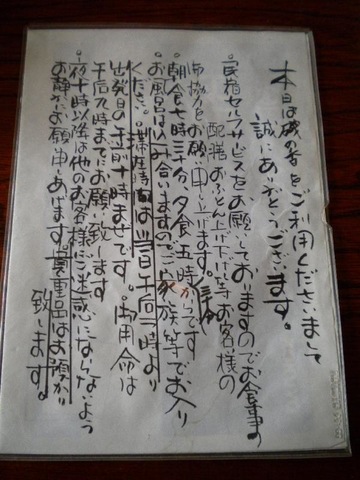 本日は磯の香をご利用くださいまして
誠にありがとうございます。
・民宿セルフサービスをお願いしておりますのでお食事の
配膳おふとん上げ下げ等お客様の
御協力をお願い申し上げます。
・朝食七時三十分夕食五時からです
・お風呂は込み合いますのでご家族等でお入り
ください。・滞在時間は当日午后一時より
出発日の午前十時までです。・御用命は
午后九時までにお願い致します
・夜十時以降は他のお客様にご迷惑にならないよう
お静かにお願い申しあげます。・貴重品はお預かり
致します。